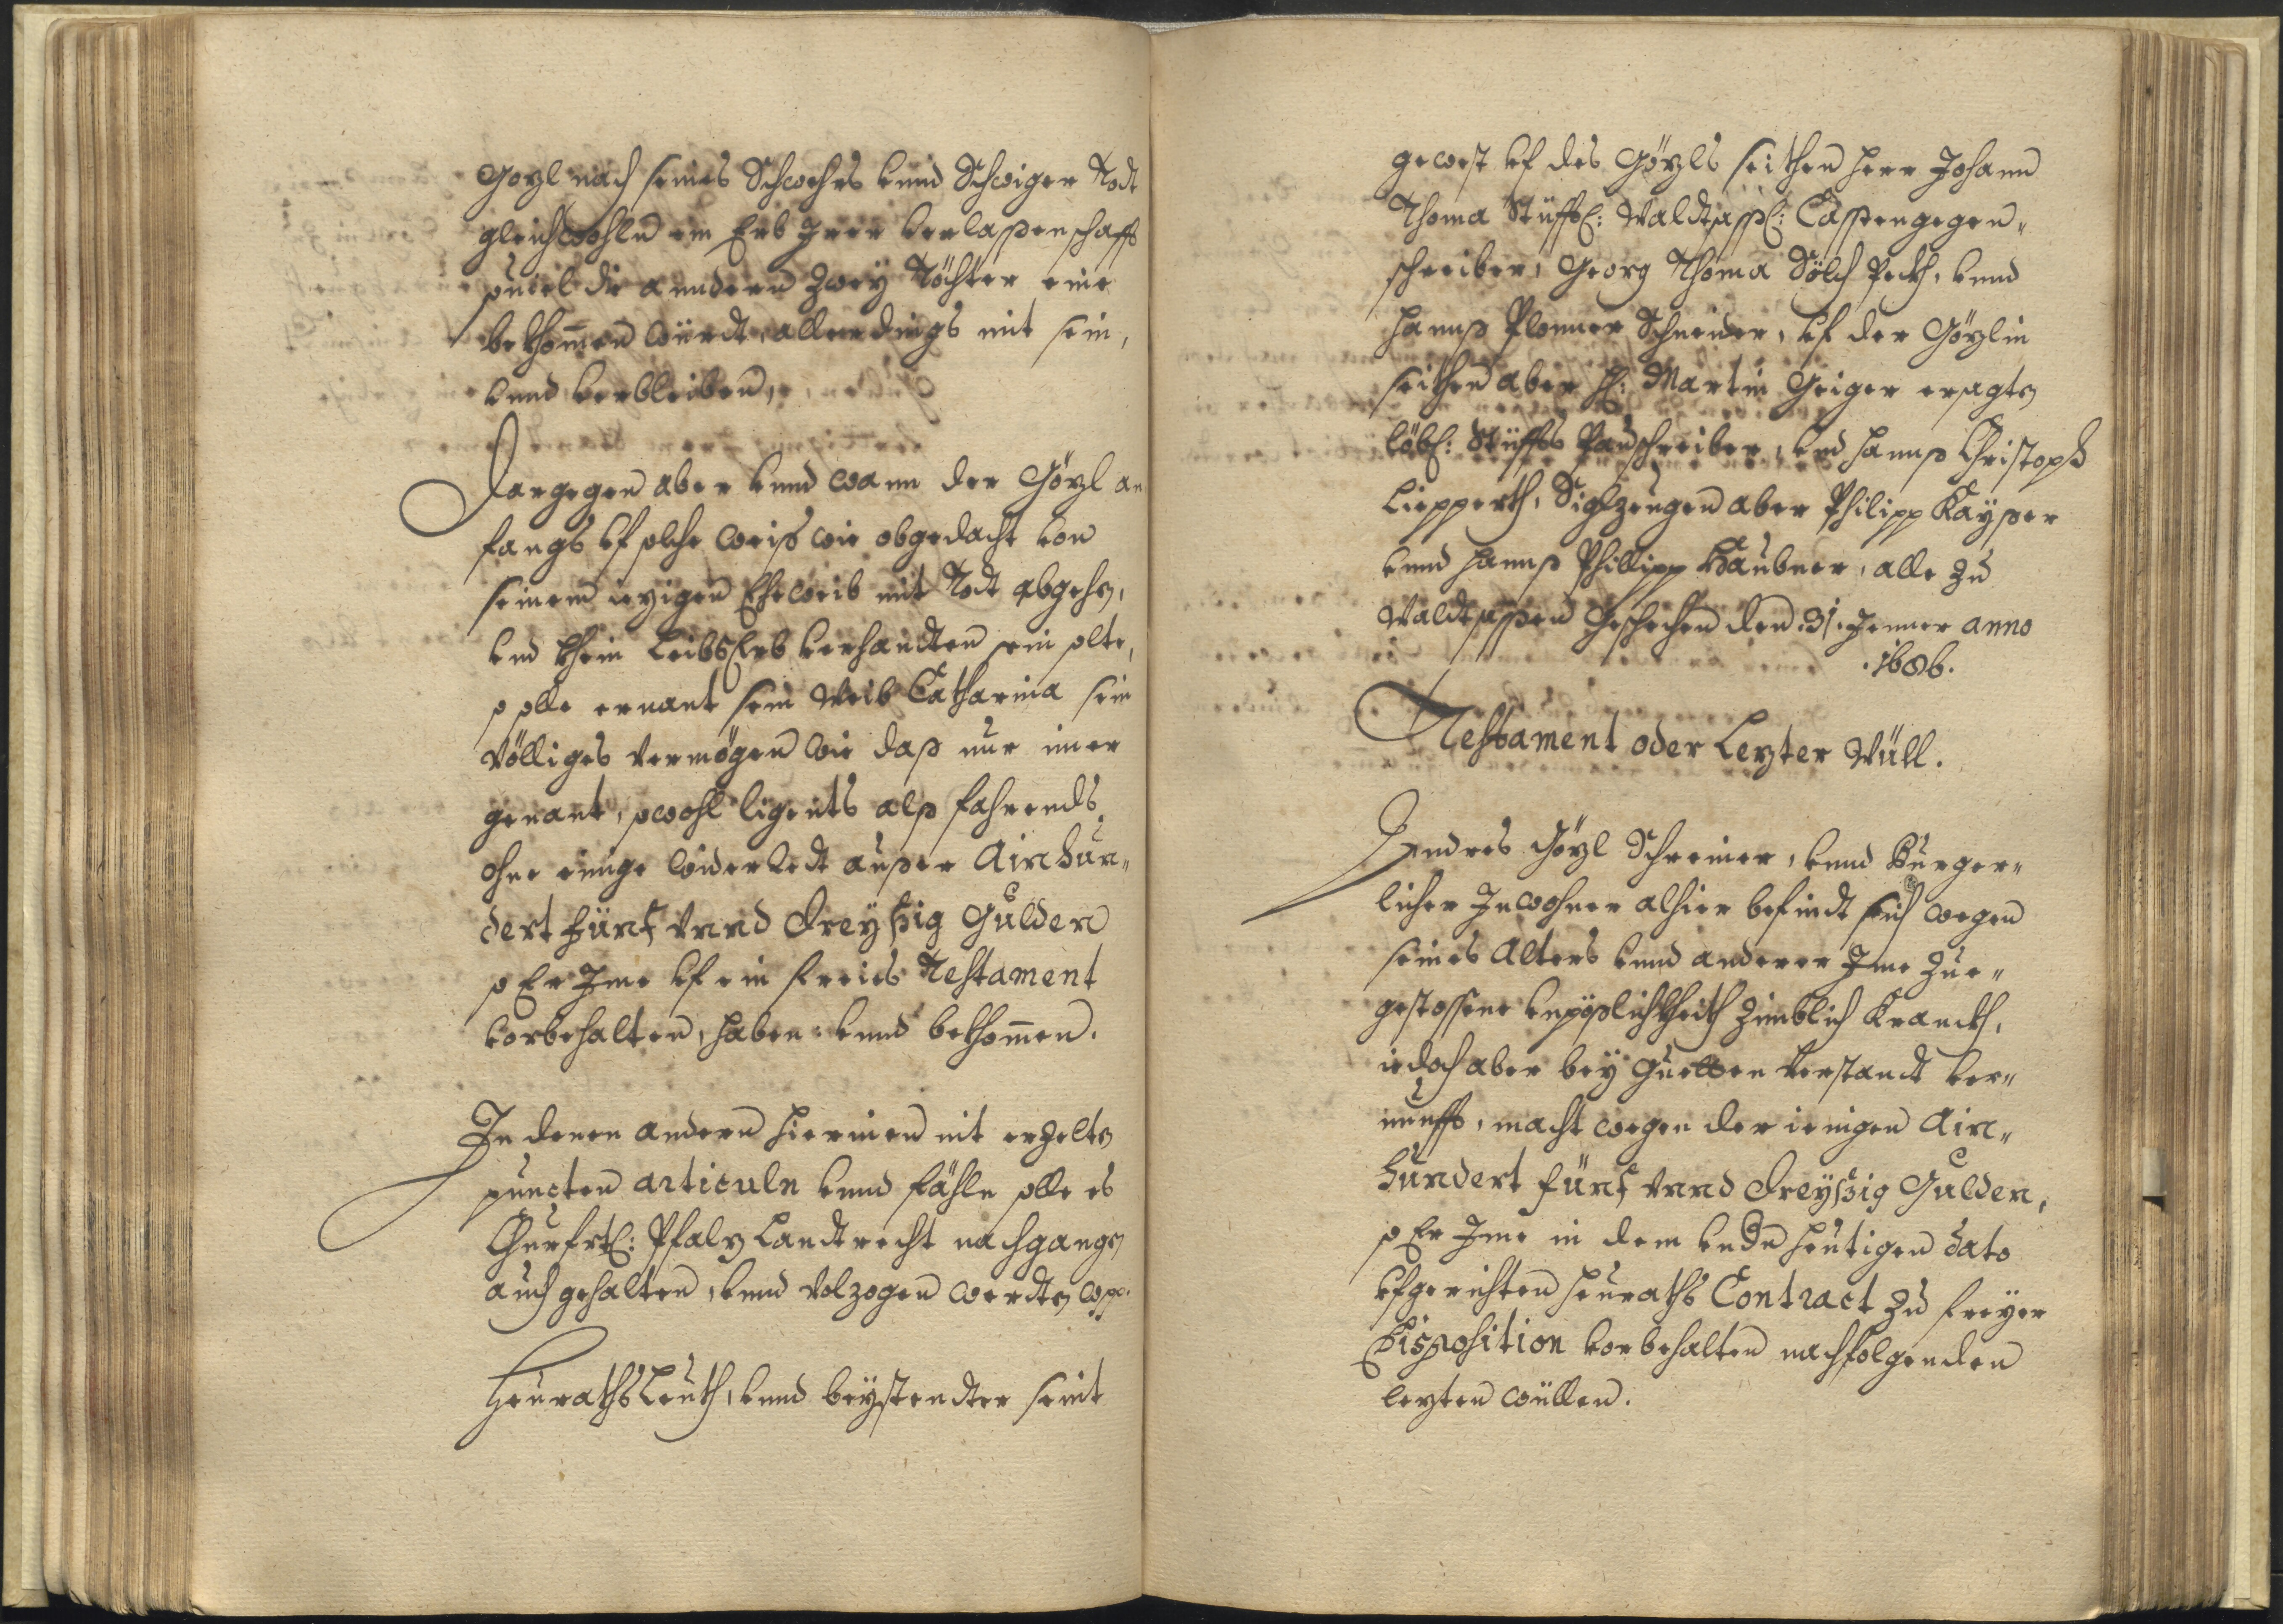 Gözl nach seines Schwehrs vnnd Schwiger Todt
gleichwohln ein Erb Irer verlassenschafft
souiel die anndern Zwey Töchter eine
bekhom̄en würdt, allerdings mit sein,
vnnd verbleiben,
Dargegen aber vnnd wann der Gözl an
fangs vf solche weis wie obgedacht von
seinem iezigen Eheweib mit Todt abgehn,
vnd khein LeibsErb verhandten sein solte,
so solle ernant sein Weib Catharina sein
völliges Vermögen wie daß nur imer
genant, sowohl ligents alß fahrends,
ohne einige widerredt ausser Ain hun„
dert fünf vnnd dreyßig Gulden
so Er Ime vf ein freies Testament
vorbehalten, haben vnnd bekhom̄en.
In denen andern hierinen nit erzelten
puncten articuln vnnd fähln solle es
Churfrtl: Pfalz Landtrecht nachgangen
auch gehalten, vnnd Volzogen werdten
Heuraths Leuth, vnnd beystendter seint
gewest vf des Gözls seithen Herr Johann
Thoma Stüfftl: Waldsassl: Casstengegen„
schreiber, Georg Thoma Sölch Peckh, vnnd
Hannß Plonner Schneider, vf der Gözlin
seithen aber H: Martin Geiger ersagten
löbl: Stüffts Pauschreiber, vnd Hannß Christoph
Liepperth, Siglzeugen aber Philipp Kayser
vnnd Hannß Phillipp Haubner, alle zu
Waldsassen Geschehen den .31. Jenner anno
.1686.
Testament oder Lezter Wüll.
Andres Gözl Schreiner, vnnd Burger„
licher Inwohner alhier befindt sich wegen
seines Alters vnnd anderer Ime Zue„
gestossene vnpäßlichkheith Zimblich Kranckh,
iedoch aber bey Guetten Verstandt ver„
nunfft, macht wegen der ienigen Ain„
hundert fünf vnnd dreyßig Gulden,
so Er Ime in dem vndern heutigen dato
vfgerichten Heuraths Contract zu freyer
Disposition vorbehalten nachfolgenden
lezten wüllen.